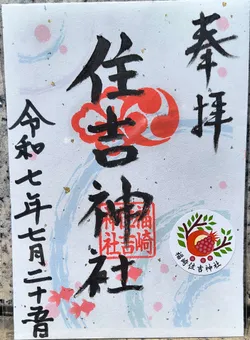 奉拝
住吉神社
福崎
住吉
神社
令和七年七月二十
福崎住吉神社